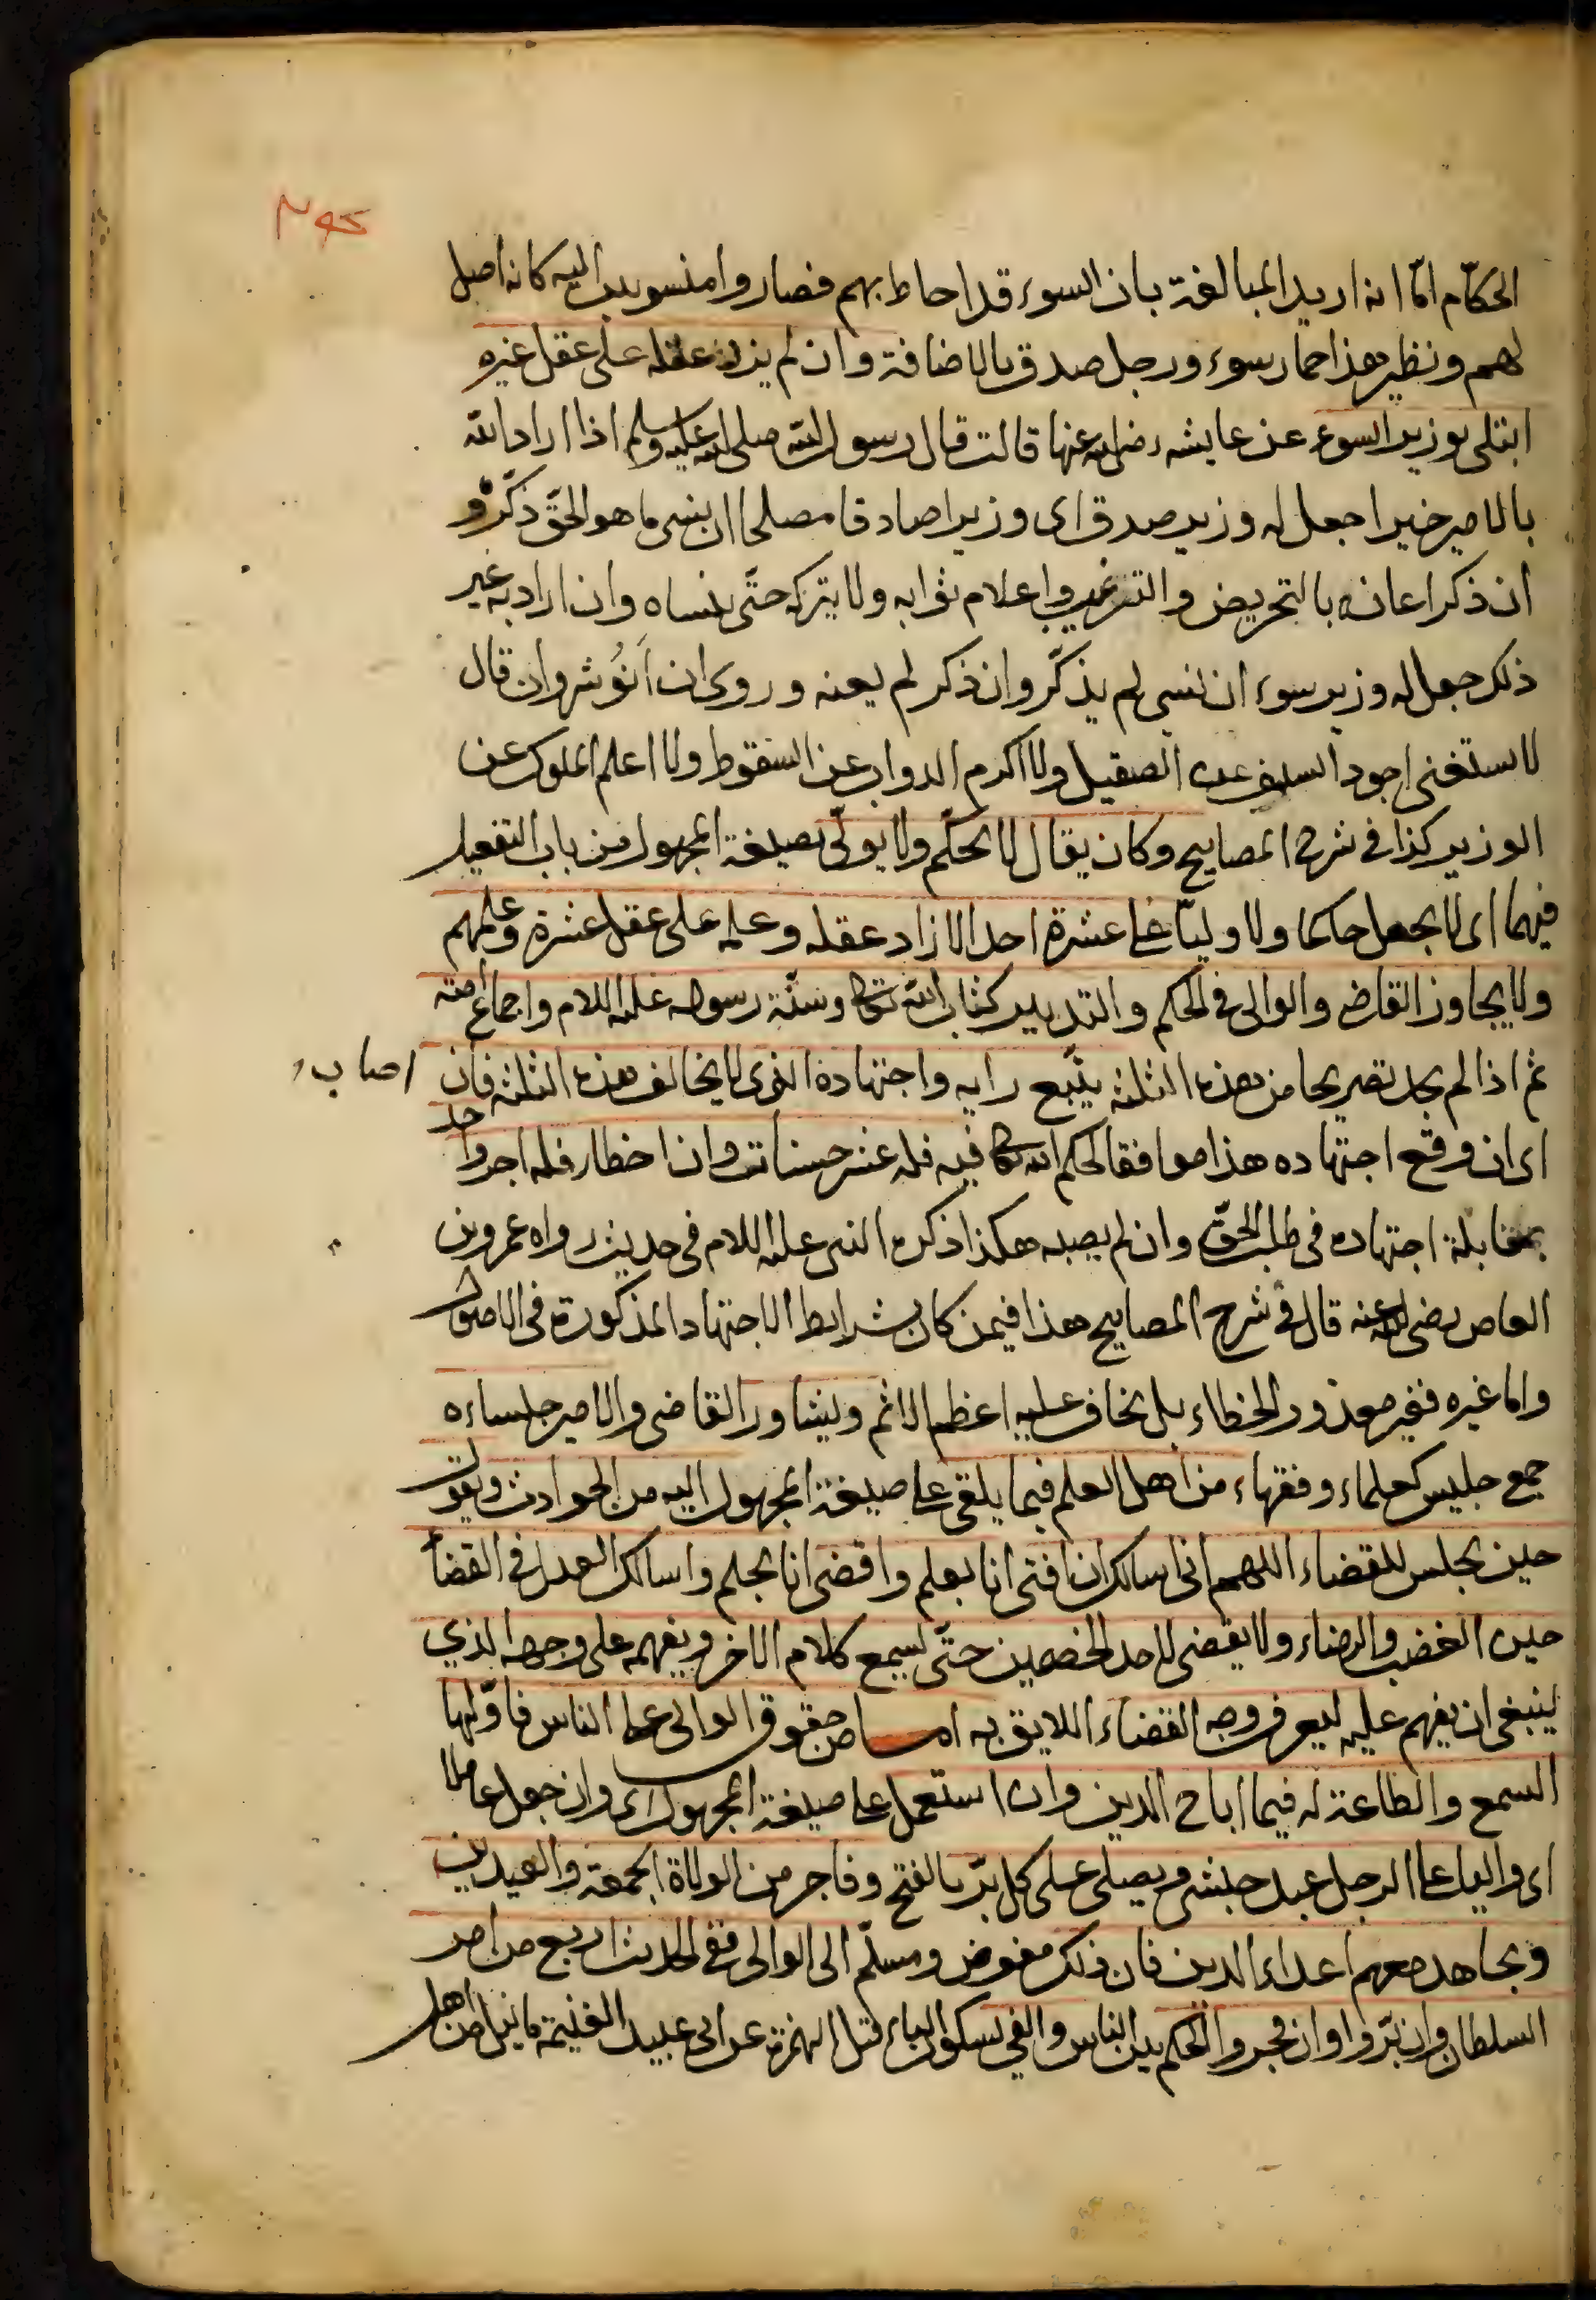 الحكّام امّا انه اريد المبالغة بان السوء قد احاط بهم فصاروا منسوبين اليه كانه اصل
لهم ونظير هذا حمار سوء ورجل صدق بالاضافة وان لم يزد عقله على عقل غيره
ابتلى بوزير السوء عن عايشه رضى الله عنها قالت قال رسول الله صلى الله عليه وسلم اذا اراد الله
بالامير خيرا جعل له وزير صدق اى وزيرا صادقا مصلحا ان ينسى ما هو الحق ذكّره و
ان ذكر اعانه بالتحريض والترغيب واعلام ثوابه ولا يتركه حتّى ينساه وان اراد به غير
ذلك جعل له وزير سوء ان نسى لم يذكّر وان ذكر لم يعنه وروى ان اَنوُشروان قال
لا يستغنى اجود السيف عن الصقيل ولا اكرم الدواب عن السقوط ولا اعلم الملوك عن
الوزير كذا فى شرح المصابيح وكان يقال لا يحكّم ولا يولّى بصيغة المجهول من باب التفعيل
فيهما اى لا يجعل حاكما ولا وليّا على عشرة احد الا زاد عقله وعلمه على عقل عشرة وعلمهم
ولا يجاوز القاضى والوالى فى الحكم والتدبير كتاب الله تعالى وسنّة رسوله عليه السلام واجماع امته
ثم اذا لم يجد تصريحا من هذه الثلثة يتّبع رايه واجتهاده الذى لا يخالف هذه الثلثة فان اصاب
اى ان وقع اجتهاده هذا موافقا لحكم الله تعالى فيه فله عشر حسنات وان اخطا فله اجر واحد
بمقابلة اجتهاده فى طلب الحقّ وان لم يصبه هكذا ذكره النبى عليه السلام فى حديث رواه عمرو بن
العاص رضى الله عنه قال فى شرح المصابيح هذا فيمن كان بشرايط الاجتهاد المذكورة فى الاصول
واما غيره فغير معذور الخطاء بل يخاف عليه اعظم الاثم ويشاور القاضى والامير جلساءه
جمع جليس كعلماء وفقهاء من اهل العلم فيما يلقى على صيغة المجهول اليه من الحوادث ويقول
حين يجلس للقضاء اللهم انى اسالك ان افتى انا بعلم واقضى انا بحلم واسالك العدل فى القضاء
حين الغضب والرضاء ولا يقضى لاحد الخصمين حتّى يسمع كلام الاخر ويفهمه على وجهه الذي
ينبغى ان يفهم عليه ليعرف وجه القضاء اللايق به امسا من حقوق الوالى على الناس فاوّلها
السمع والطاعة له فيما اباح الدين وان استعمل على صيغة المجهول اى وان جعل عاملا
اى واليا على الرجل عبد حبشى ويصلى على كل بَرّ بالفتح وفاجر من الولاة الجمعة والعيدين
ويجاهد معهم اعداء الدين فان ذلك مفوض ومسلّم الى الوالى ففى الحديث اربع من امر
السلطان وان برّوا وان فجروا الحكم بين الناس والفئ بسكون الياء قبل الهمزة عن ابى عبيد الغنيمة ما نيل من اهل